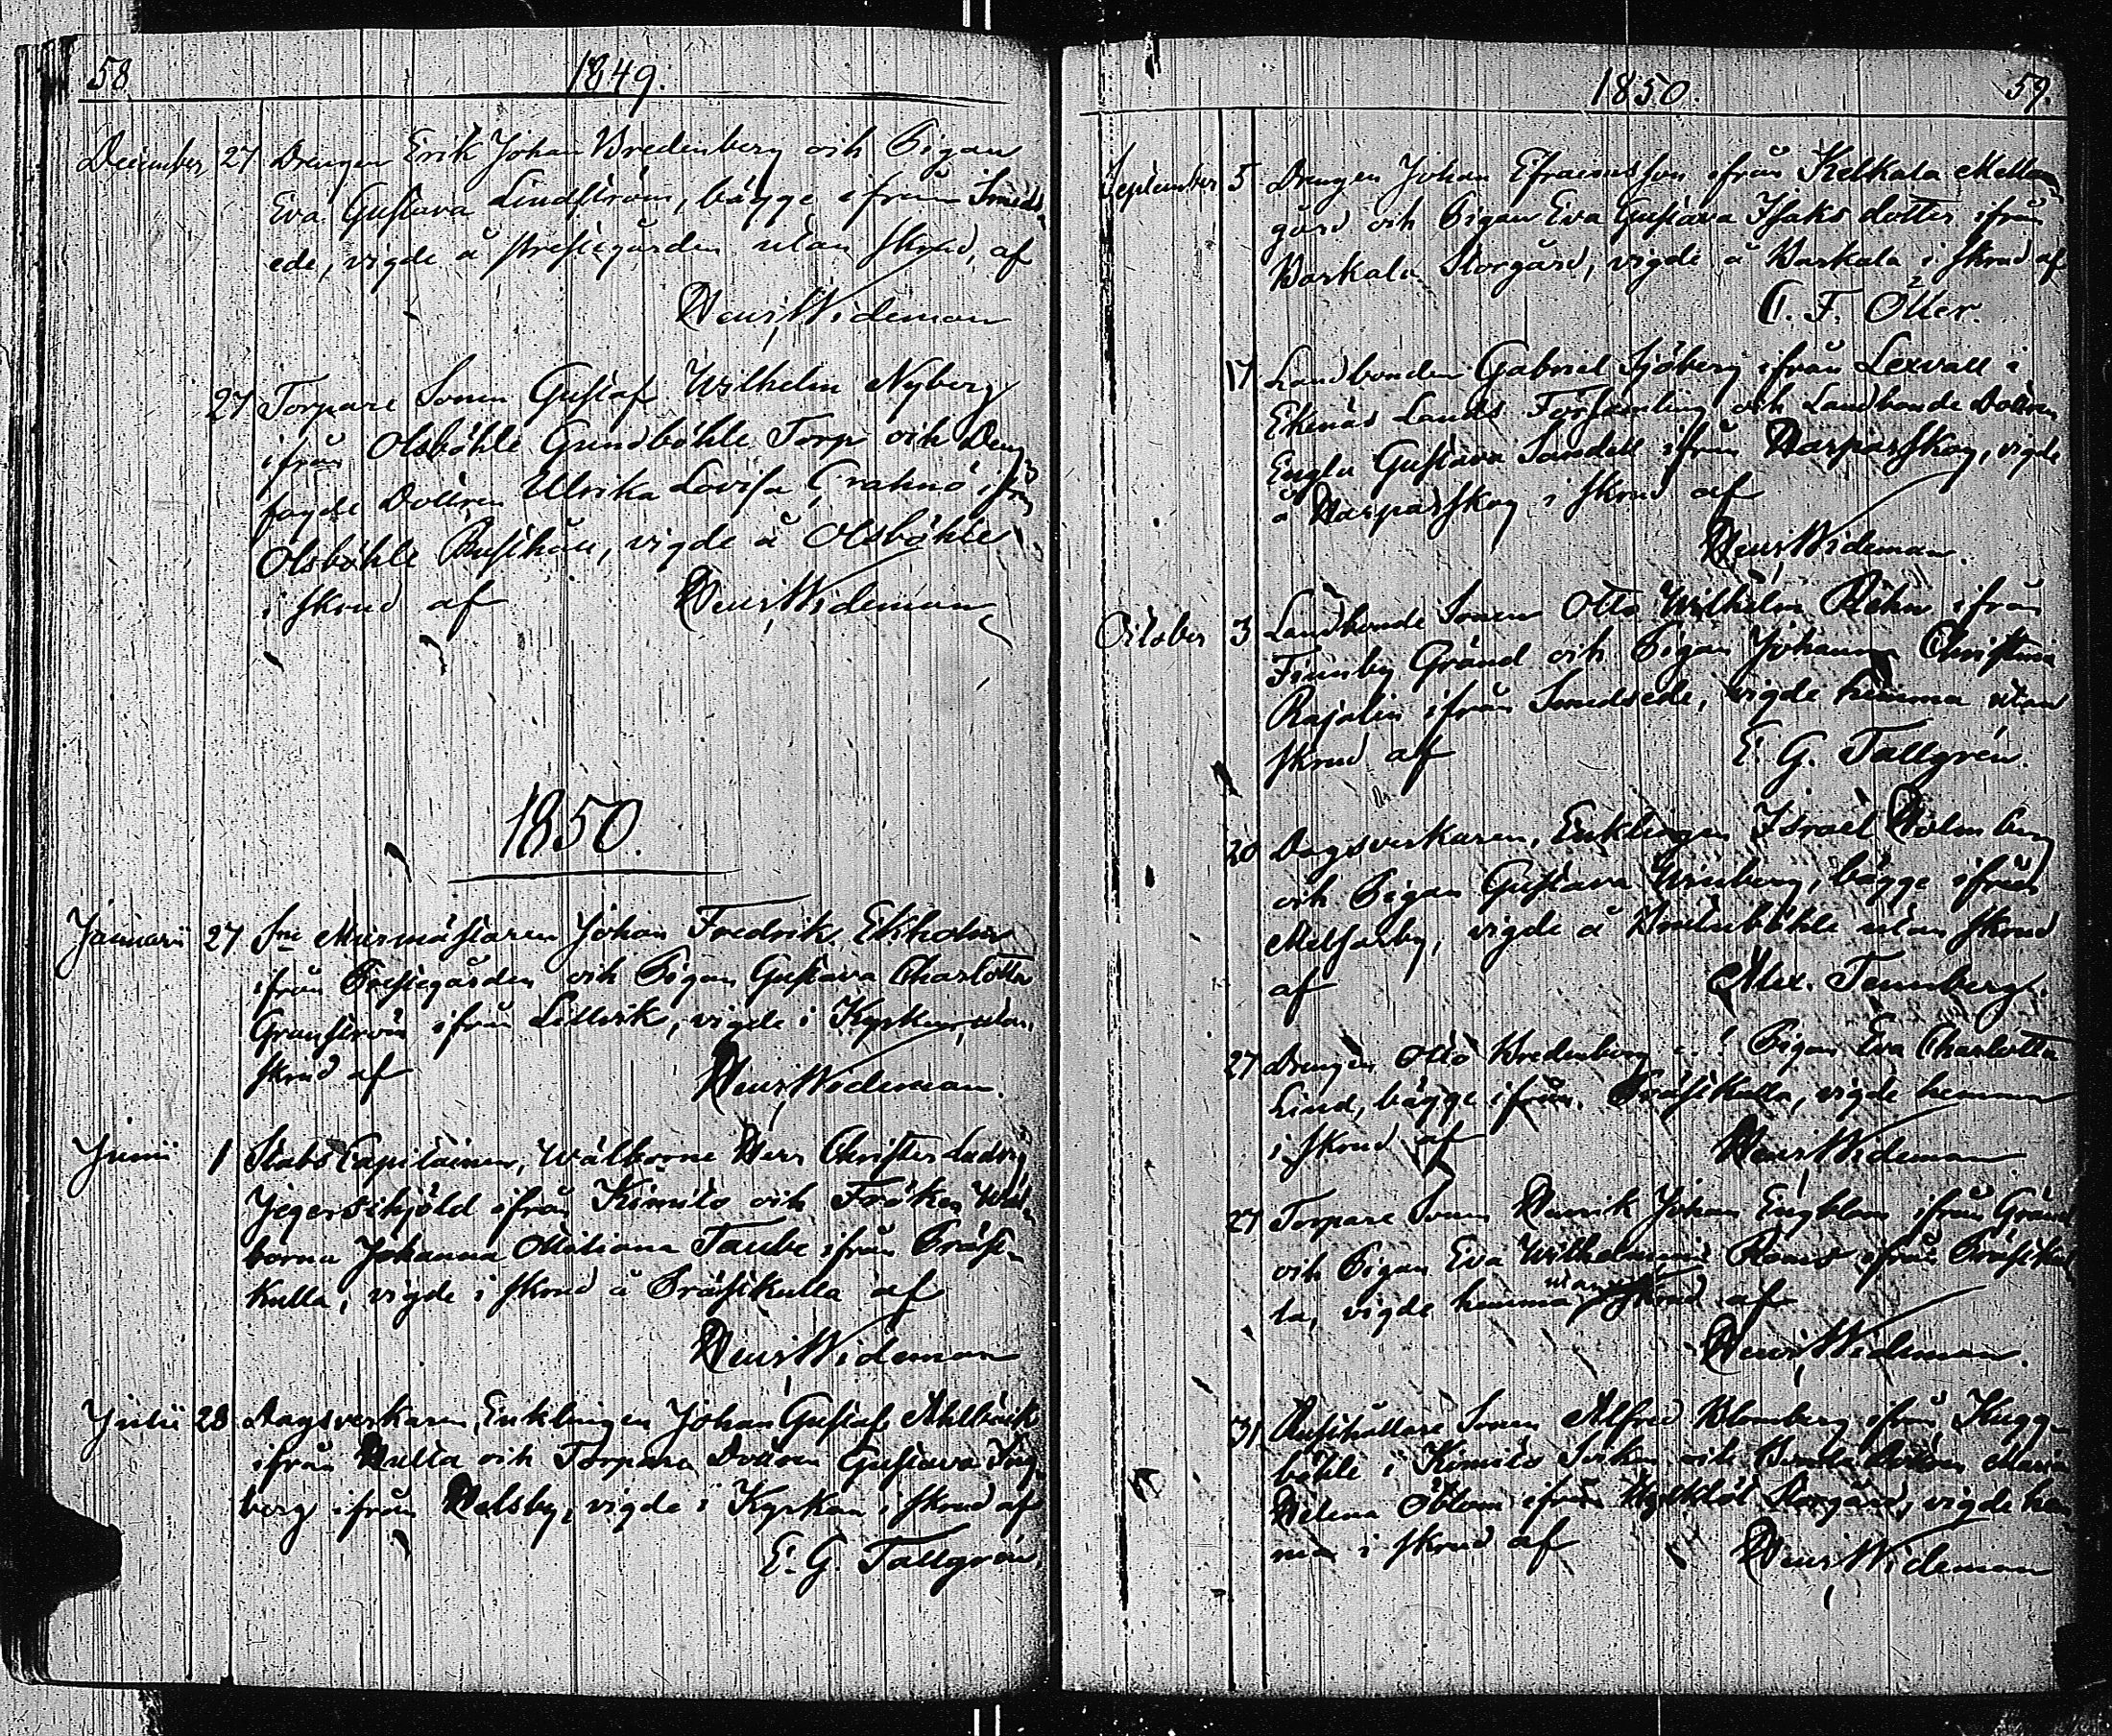 58 1849.
December 27 Drengen Erik Johan Bredenberg och Pigan
Eva Gustava Lindström, bägge ifrån Smeds-
ede, vigde å Prestegården utan skrud, af
Henr. Wideman
27 Torpare Sonen Gustaf Wilhelm Nyberg
ifrån Olsböhle Gundböhle Torp och
Dottren Ullrika Lovisa ifrån
Olsböhle Rusthåll, vigde å Olsböhle
i skrud af Henr. Wideman
1850.
Januarii 27 Murmästaren Johan Fredrik Ekholm
ifrån Prestegården och Pigan Gustava Charlotta
Granström ifrån Lellvik, vigde i Kyrkan, utan
skrud af Henr. Wideman.
Junii 1 Stabs Capitainen, Wälborne Herr Christer Ludvig
Jegerschjöld ifrån Kimito och Fröken Wäl-
borna Johanna Miliana Taube ifrån Präst-
kulla, vigde i skrud å Prästkulla af
Henr. Wideman
Julii 28 Dagsverkaren, Enklingen Johan Gustaf
ifrån Hulta och Torpare Dottren Gustava
berg ifrån Helsby, vigde i Kyrkan i skrud af
E. G. Tallgren.
1850. 59.
September 5 Drengen Johan Efraimsson ifrån Kelkala Mellan-
gård och Pigan Eva Gustava Isaks dotter ifrån
Baskala Storgård, vigde å Baskala i skrud af
C. F. Otter.
17 Landbonden Gabriel Sjöberg ifrån Lexvall i
Ekenäs Lands Församling och Landbonde Dottren
Engla Gustava Sandell ifrån Harparskog, vigde
å Harparskog i skrud af
Henr. Wideman.
October 3 Landbonde Sonen Otto Wilhelm ifrån
Finnby Gränd och Pigan Johanna Christina
Rajalin ifrån Smedsede, vigde hemma utan
skrud af E. G. Tallgrén.
20 Dagsverkaren, Enklingen Israel Holmberg
och Pigan Gustava bägge ifrån
Melsarby, vigde å utan skrud
af Alex. Tennberg.
27 Drengen Otto Bredenberg Pigan Eva Charlotta
Lind, bägge ifrån Prästkulla, vigde hemma
i skrud af Henr. Wideman
27 Torpare Sonen Henrik Johan Engblom ifrån Gränd
och Pigan Eva Wilhelmina Roms ifrån Prästkul-
la, vigde hemma utan skrud af
Henr. Wideman.
31 Rusthållare Sonen Alfred Blomberg ifrån Kugg-
böhle i Kimito Socken och Bonde Dottren Maria
Helena Öblom ifrån Storgård, vigde hem-
ma i skrud af Henr. Wideman